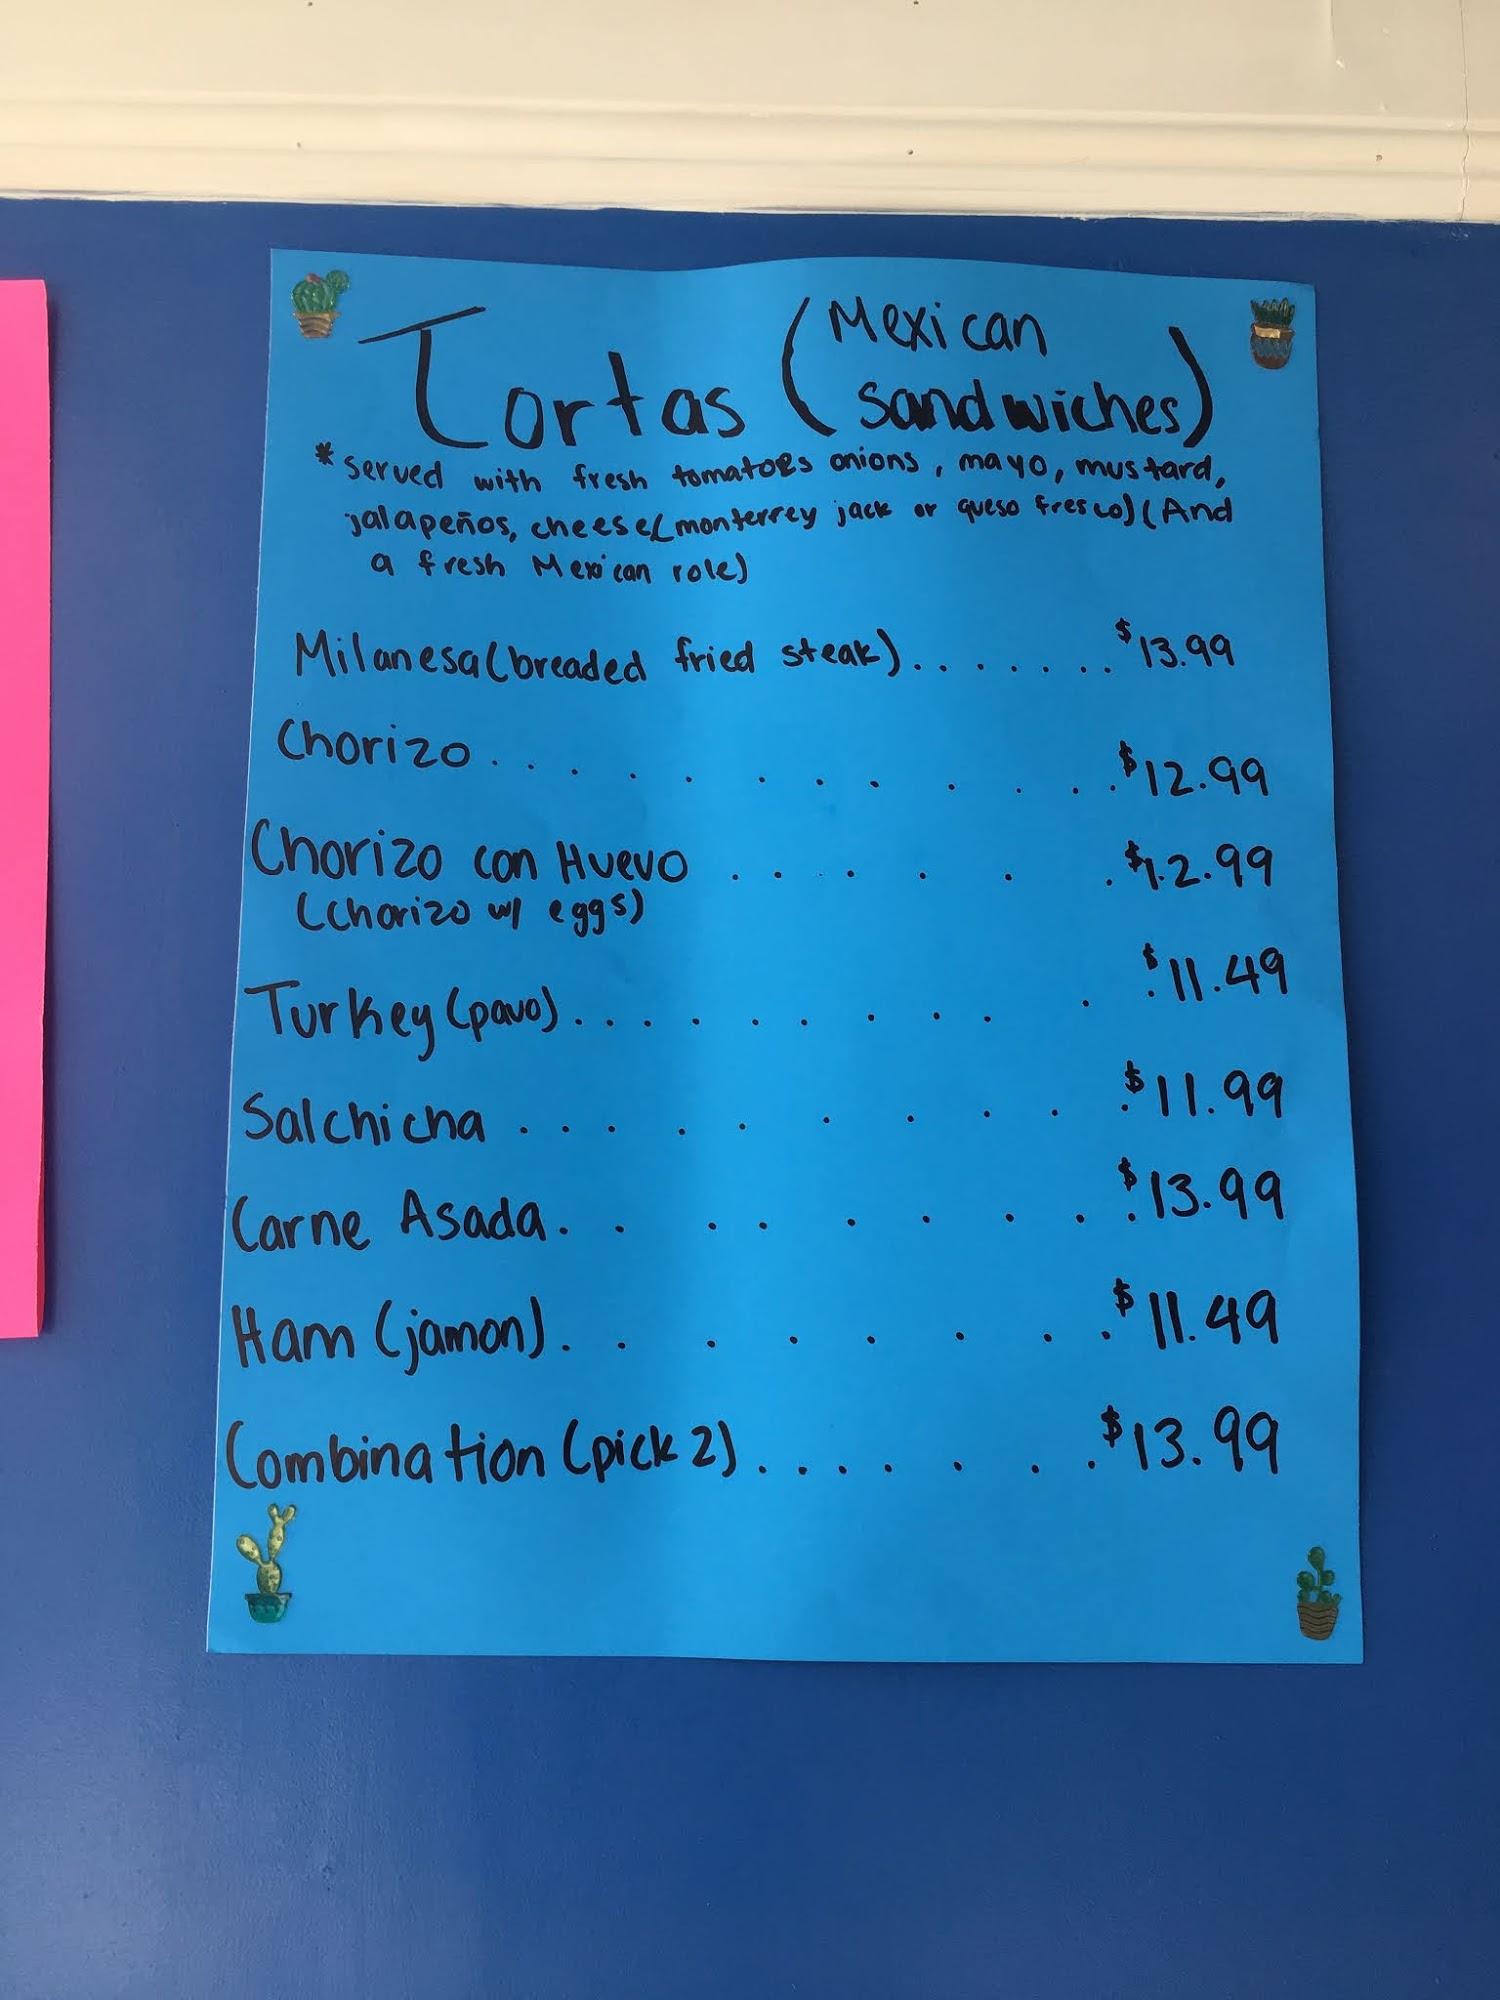 Tortas (Mexican sandwiches)
*served with fresh tomatoes onions, mayo, mustard,
jalapeños, cheese(monterrey jack or queso fresco)(And
a fresh Mexican role)
Milanesa(breaded fried steak)....... $13.99
Chorizo............ $12.99
Chorizo con Huevo ....... $12.99
(Chorizo w/ eggs)
Turkey(pavo)............ $11.49
Salchicha .......... $11.99
Carne Asada......... $13.99
Ham (jamon)........ $11.49
Combination (pick 2)........ $13.99